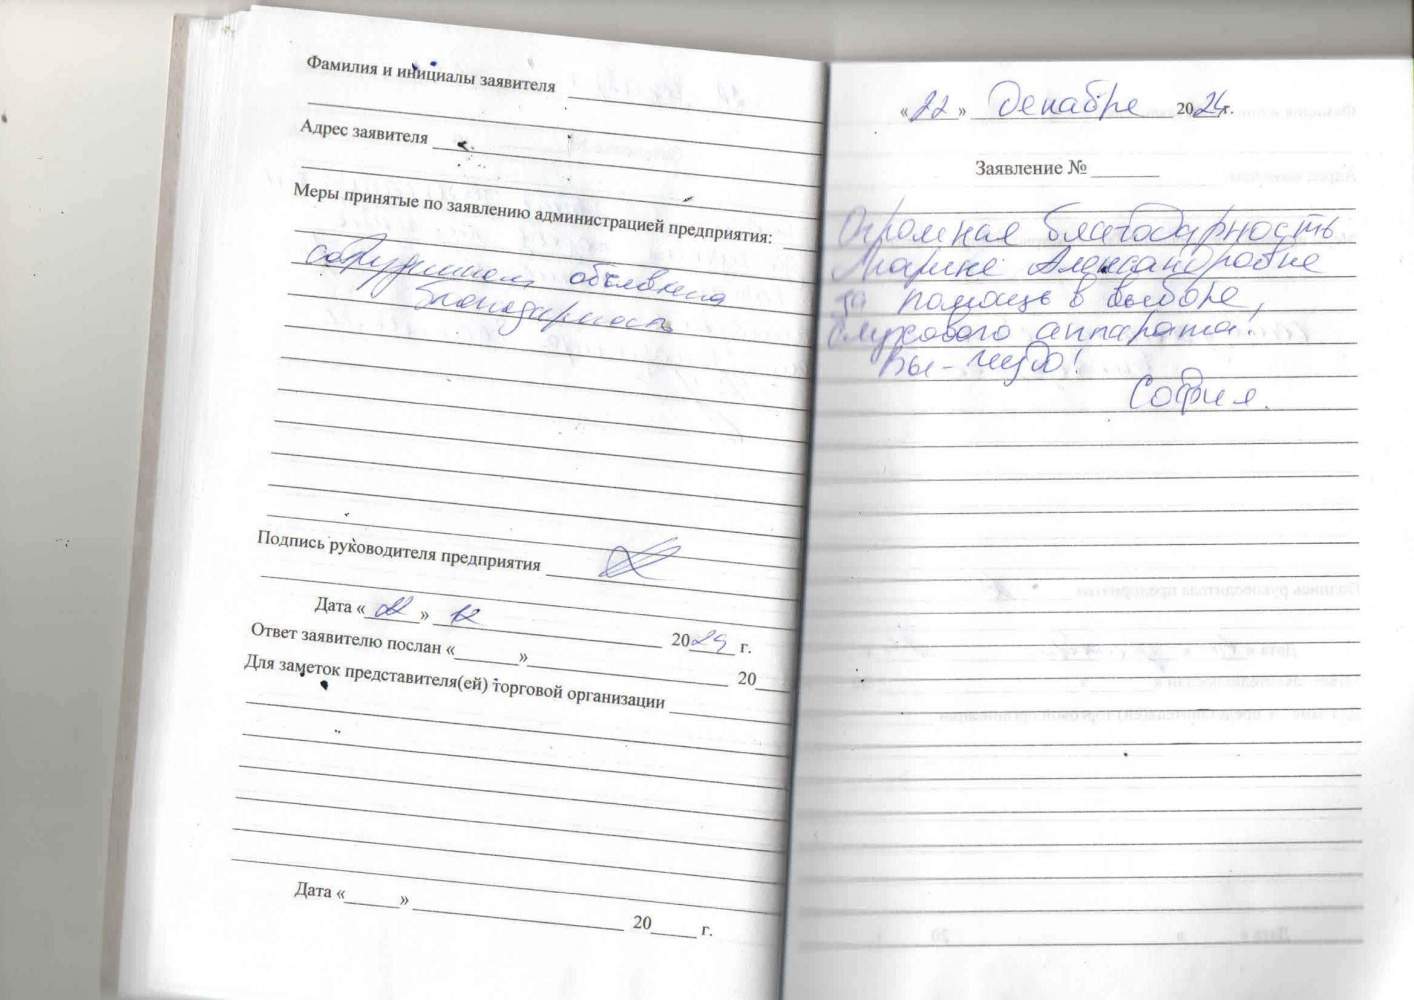 Фамилия и инициалы заявителя
Адрес заявителя
Меры принятые по заявлению администрацией предприятия:
объявлена
благодарность
Подпись руководителя предприятия
Дата « 22 » 12 2024 г.
Ответ заявителю послан « » 20
Для заметок представителя(ей) торговой организации
Дата « » 20 г.
« 22 » Декабре 2024г.
Заявление №
Огромная благодарность
Марине Александровне
за помощь в выборе,
слухового аппарата!
Вы - чудо!
София.